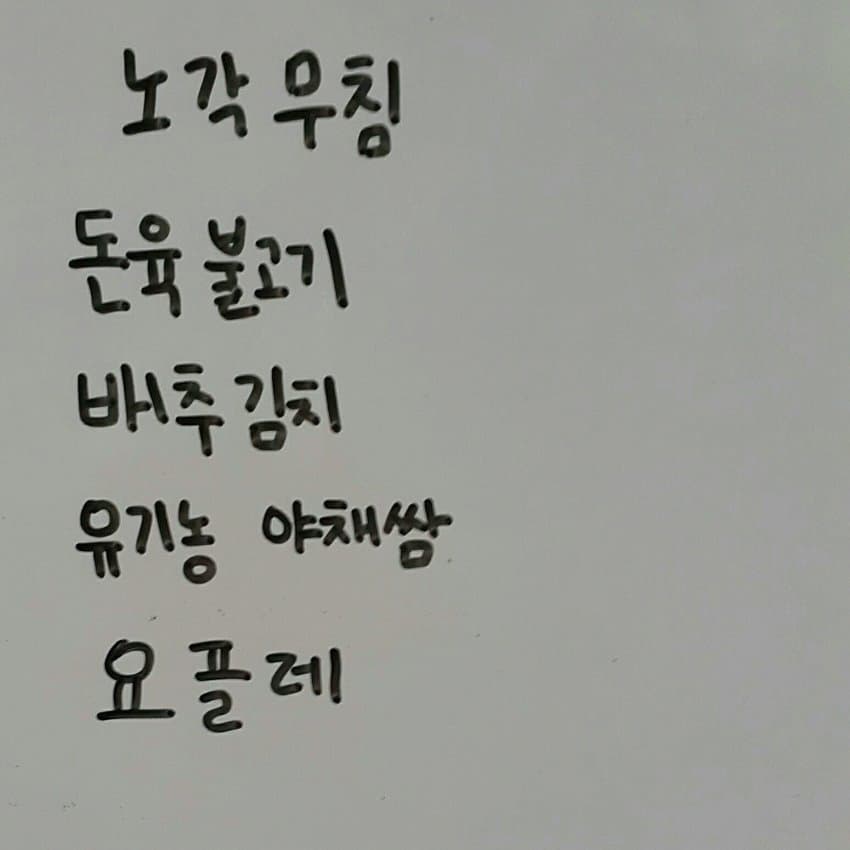 노각 무침
돈육 불고기
배추 김치
유기농 야채쌈
요플레